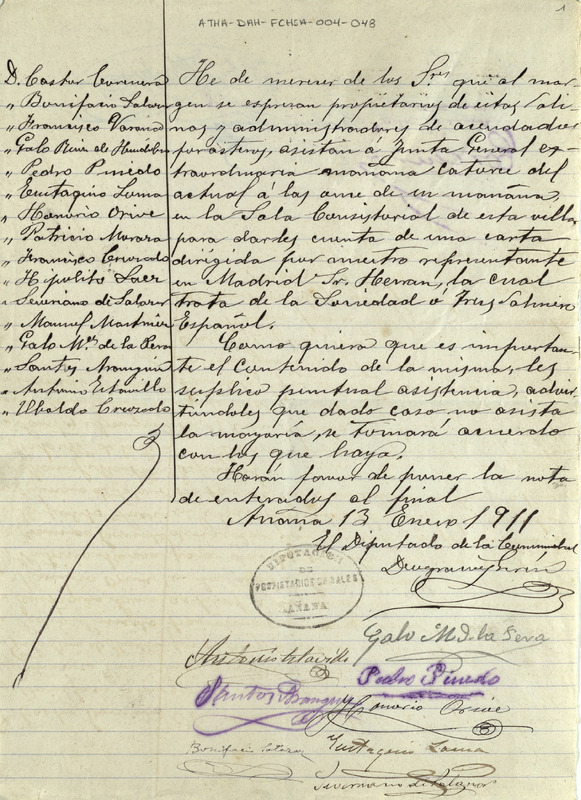 ATHA-DAH-FCHSA-004-048
1
D. Castor
" Bonifacio Salazar
" Francisco Varona
" Galo Ruiz de
" Pedro Pinedo
" Eutaquio Loma
" Honorio Orive
" Patricio Moraza
" Francisco
" Hipolito Saez
" Severiano de Salazar
" Manuel Martinez
" Galo Mz. de la Pera
" Santos Arangüiz
" Antonio Estavillo
" Ubaldo
He de merecer de los Sres que al mar-
gen se expresan propietarios de estas Sali-
nas y administradores de acendados
forasteros, asistan á Junta General ex-
traordinaria mañana catorce del
actual á las once de su mañana,
en la Sala Consistorial de esta villa
para darles cuenta de una carta
dirigida por nuestro representante
en Madrid Sr. Herran, la cual
trata de la Sociedad o Trus Salinero
Español.
Como quiera que es importan-
te el contenido de la misma, les
suplico puntual asistencia, advir-
tiendoles que dado caso no asista
la mayoría, se tomará acuerdo
con los que haya.
Harán favor de poner la nota
de enterados al final
Añana 13 Enero 1911
El Diputado de la Comunidad
DIPUTACION
DE
PROPIETARIOS DE SALES
AÑANA
Galo M de la Pera
Antonio Estavillo
Pedro Pinedo
Santos Arangüiz
Honorio Orive
Bonifacio Salazar
Eutaquio Loma
Severiano de Salazar